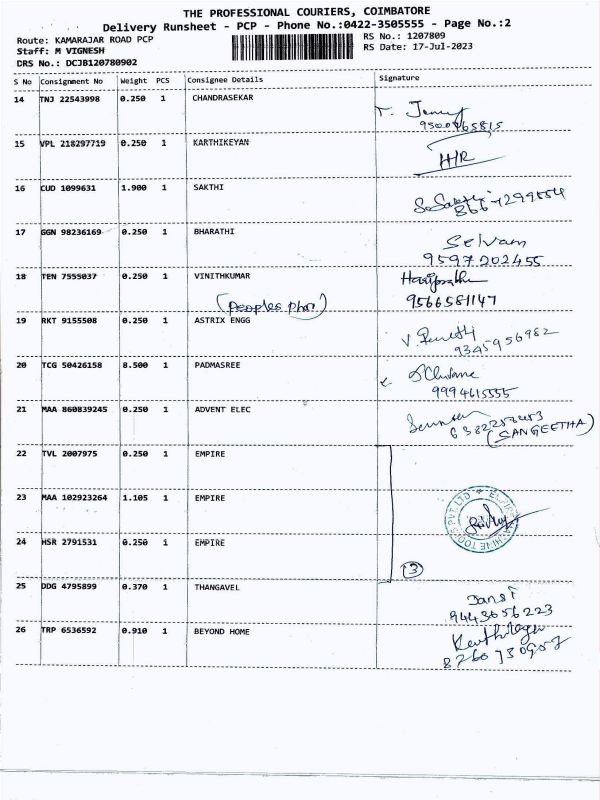 THE PROFESSIONAL COURIERS, COIMBATORE
Delivery Runsheet - PCP - Phone No.:0422-3505555 - Page No.:2
Route: KAMARAJAR ROAD PCP
Staff: M VIGNESH
DRS No.: DCJB120780902
RS No.: 1207809
RS Date: 17-Jul-2023
S No Consignment No Weight PCS Consignee Details Signature
14 TNJ 22543998 0.250 1 CHANDRASEKAR
15 VPL 218297719 0.250 1 KARTHIKEYAN
H/R
16 CUD 1099631 1.900 1 SAKTHI
17 GGN 98236169 0.250 1 BHARATHI
Selvam
9597202455
18 TEN 7555037 0.250 1 VINITHKUMAR
(Peoples Phar.)
9566581147
19 RKT 9155508 0.250 1 ASTRIX ENGG
9345956982
20 TCG 50426158 8.500 1 PADMASREE
9994615555
21 MAA 860839245 0.250 1 ADVENT ELEC
(SANGEETHA)
22 TVL 2007975 0.250 1 EMPIRE
23 MAA 102923264 1.105 1 EMPIRE
24 HSR 2791531 0.250 1 EMPIRE
3
25 DDG 4795899 0.370 1 THANGAVEL
Jansi
9443656223
26 TRP 6536592 0.910 1 BEYOND HOME
8760730907